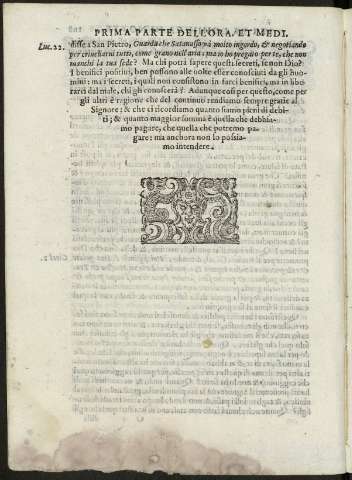 PRIMA PARTE DELL'ORA. ET MEDI.
Luc. 22. disse a San Pietro, Guarda che Satanasso và molto ingordo, & negotiando
per crivellarvi tutti, come grano nell'aria: ma io ho pregato per te, che non
manchi la tua fede? Ma chi potrà sapere questi secreti, se non Dio?
I benefici positivi, ben possono alle volte esser conosciuti da gli huo-
mini: ma i secreti, i quali non consistono in farci benefici, ma in libe-
rarci dal male, chi gli conoscerà? Adunque così per questo, come per
gli altri è ragione che del continuo rendiamo sempre gratie al
Signore: & che ci ricordiamo quanto siamo pieni di debi-
ti; & quanto maggior somma è quella che debbia-
mo pagare, che quella che potremo pa-
gare: ma anchora non lo possia-
mo intendere.